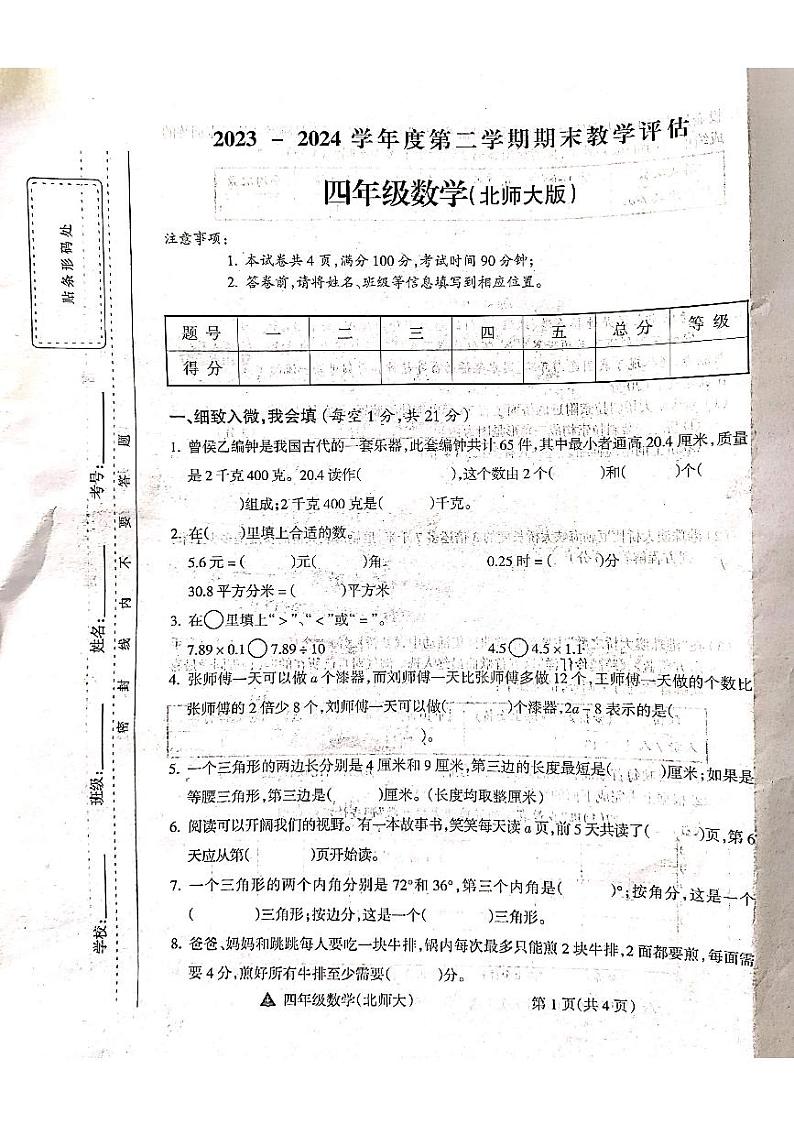 2023 - 2024 学年度第二学期期末教学评估
四年级数学(北师大版)
贴条形码处
注意事项:
1. 本试卷共 4 页,满分 100 分,考试时间 90 分钟;
2. 答卷前,请将姓名、班级等信息填写到相应位置。
题 号 一 二 三 四 五 总 分 等 级
得 分
一、细致入微,我会填(每空 1 分,共 21 分)
1. 曾侯乙编钟是我国古代的一套乐器,此套编钟共计 65 件,其中最小者通高 20.4 厘米,质量
是 2 千克 400 克。20.4 读作( ),这个数由 2 个( )和( )个(
)组成;2 千克 400 克是( )千克。
2. 在( )里填上合适的数。
5.6 元 = ( )元( )角 0.25 时 = ( )分
30.8 平方分米 = ( )平方米
3. 在○里填上“ > ”、“ < ”或“ = ”。
7.89 × 0.1○7.89 ÷ 10 4.5○4.5 × 1.1
4. 张师傅一天可以做 a 个漆器,而刘师傅一天比张师傅多做 12 个,王师傅一天做的个数比
张师傅的 2 倍少 8 个,刘师傅一天可以做( )个漆器,2a - 8 表示的是(
)。
5. 一个三角形的两边长分别是 4 厘米和 9 厘米,第三边的长度最短是( )厘米;如果是
等腰三角形,第三边是( )厘米。(长度均取整厘米)
6. 阅读可以开阔我们的视野。有一本故事书,笑笑每天读 a 页,前 5 天共读了( )页,第 6
天应从第( )页开始读。
7. 一个三角形的两个内角分别是 72°和 36°,第三个内角是( )°;按角分,这是一个
( )三角形;按边分,这是一个( )三角形。
8. 爸爸、妈妈和跳跳每人要吃一块牛排,锅内每次最多只能煎 2 块牛排,2 面都要煎,每面需
要 4 分,煎好所有牛排至少需要( )分。
四年级数学(北师大) 第 1 页(共 4 页)
学校: 班级: 姓名: 考号:
密 封 线 内 不 要 答 题